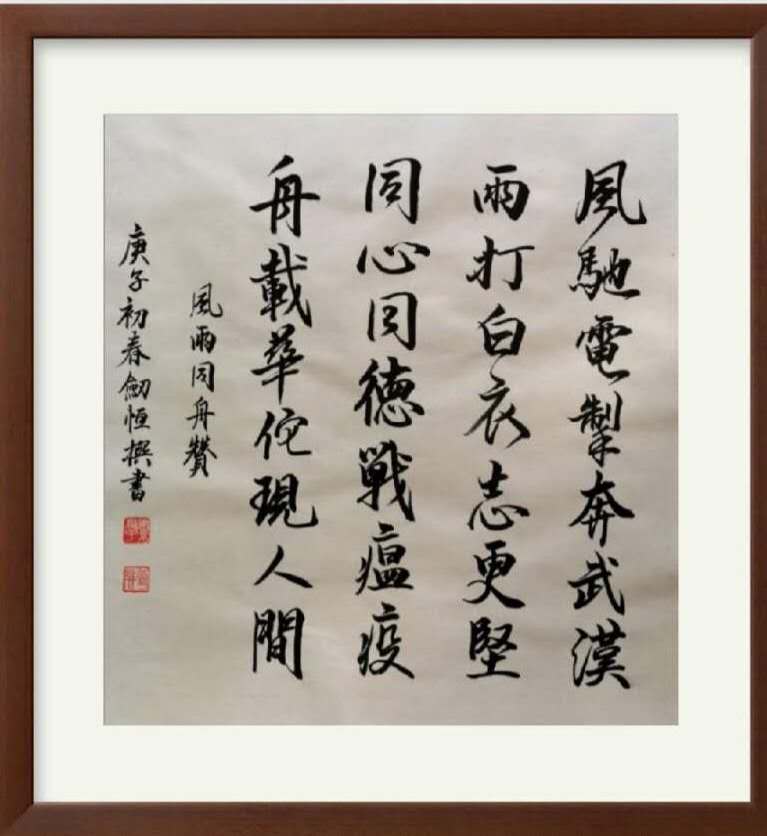 風馳電掣奔武漢
雨打白衣志更堅
同心同德戰瘟疫
舟載華佗現人間
風雨同舟贊
庚子初春劍恒撰書